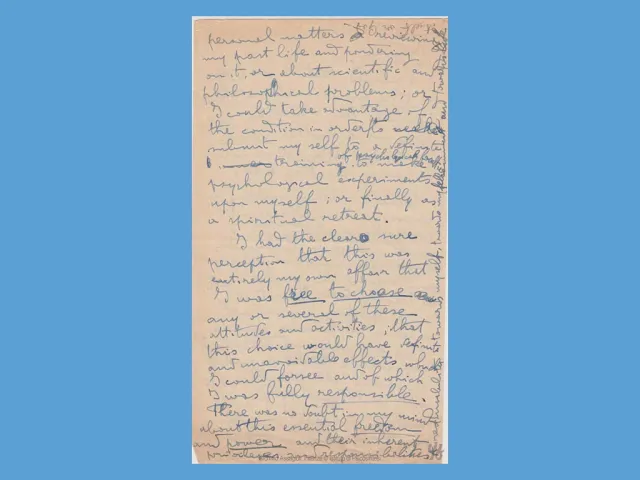 personal matters reviewing
my past life and pondering
on it, or about scientific and
philosophical problems; or
I could take advantage of
the condition in order to
submit my self to a definite
training of psychological to make
psychological experiments
upon myself; or finally as
a spiritual retreat.
I had the clear sure
perception that this was
entirely my own affair that
I was free to choose
any or several of these
attitudes and activities; that
this choice would have definite
and unavoidable effects which
I could forsee and of which
I was fully responsible.
There was no doubt in my mind
about this essential freedom
and power and their inherent
priviledges and responsibilities
towards myself, towards my